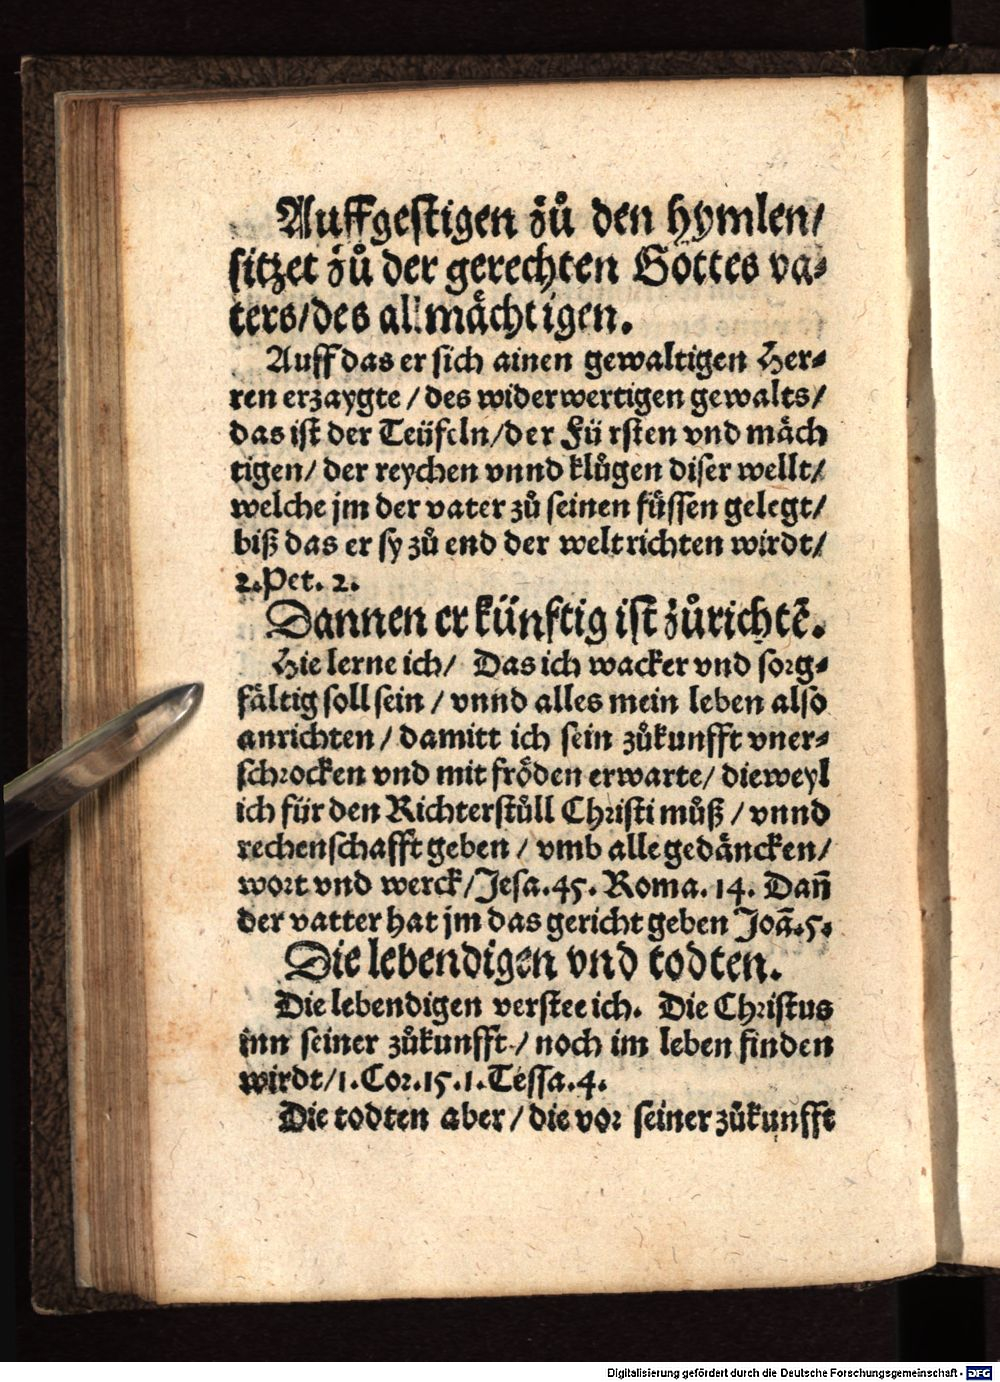 Auffgestigen zů den hymlen/
sitzet zů der gerechten Gottes va-
ters/des allmächtigen.
Auff das er sich ainen gewaltigen Her-
ren erzaygte / des widerwertigen gewalts/
das ist der Teüfeln/der Fürsten vnd mäch
tigen/ der reychen vnnd klůgen diser wellt/
welche jm der vater zů seinen füssen gelegt/
biß das er sy zů end der welt richten wirdt/
2.Pet. 2.
Dannen er künftig ist zůrichtē.
Hie lerne ich/ Das ich wacker vnd sorg-
fältig soll sein / vnnd alles mein leben also
anrichten / damitt ich sein zůkunfft vner-
schrocken vnd mit fröden erwarte/ dieweyl
ich für den Richterstůll Christi můß / vnnd
rechenschafft geben / vmb alle gedäncken/
wort vnd werck/Jesa.45. Roma. 14. Dañ
der vatter hat jm das gericht geben Joā.5.
Die lebendigen vnd todten.
Die lebendigen verstee ich. Die Christus
inn seiner zůkunfft / noch im leben finden
wirdt/1.Cor.15.1.Tessa.4.
Die todten aber / die vor seiner zůkunfft
Digitalisierung gefördert durch die Deutsche Forschungsgemeinschaft - DFG